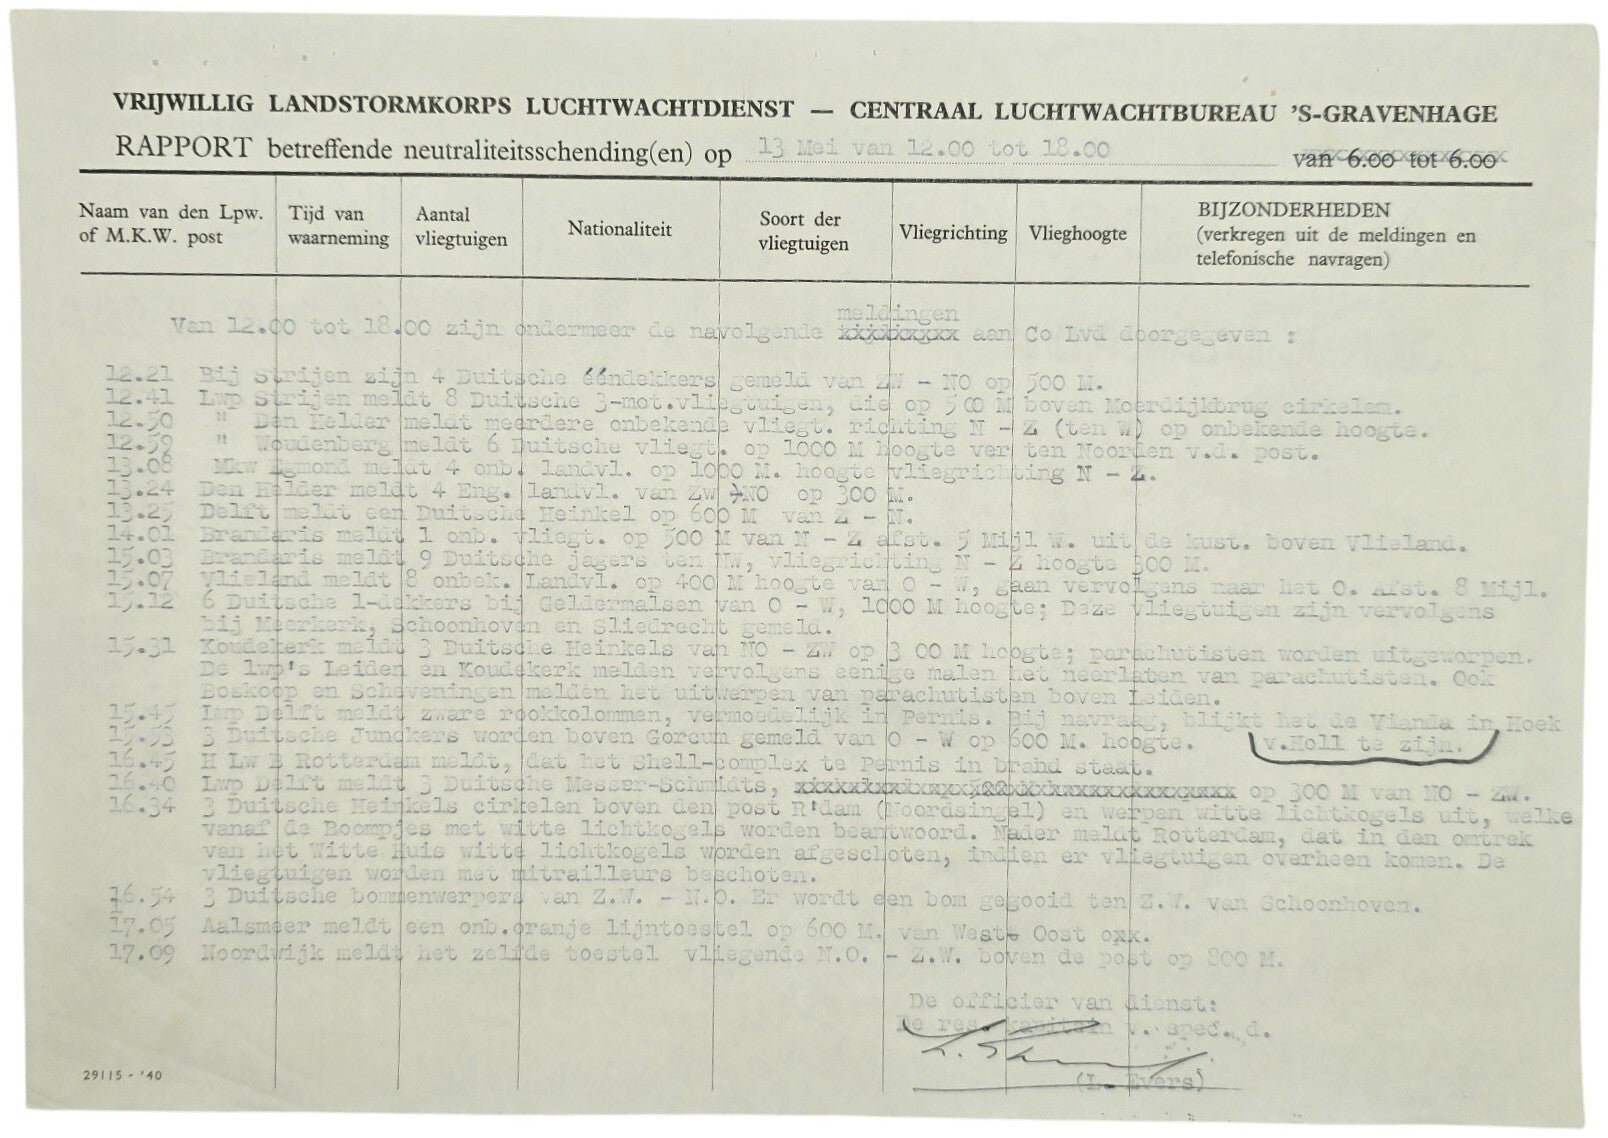 VRIJWILLIG LANDSTORMKORPS LUCHTWACHTDIENST — CENTRAAL LUCHTWACHTBUREAU 'S-GRAVENHAGE
RAPPORT betreffende neutraliteitsschending(en) op 13 Mei van 12.00 tot 18.00 van 6.00 tot 6.00
Naam van den Lpw. of M.K.W. post
Tijd van waarneming
Aantal vliegtuigen
Nationaliteit
Soort der vliegtuigen
Vliegrichting
Vlieghoogte
BIJZONDERHEDEN (verkregen uit de meldingen en telefonische navragen)
meldingen
Van 12.00 tot 18.00 zijn ondermeer de navolgende xxxxxxxxx aan Co Lvd doorgegeven :
12.21 Bij Strijen zijn 4 Duitsche ééndekkers gemeld van ZW - NO op 500 M.
12.41 Lwp Strijen meldt 8 Duitsche 3-mot.vliegtuigen, die op 500 M boven Moerdijkbrug cirkelem.
12.50 " Den Helder meldt meerdere onbekende vliegt. richting N - Z (ten W) op onbekende hoogte.
12.59 " Woudenberg meldt 6 Duitsche vliegt. op 1000 M hoogte ver ten Noorden v.d. post.
13.08 Mkw Egmond meldt 4 onb. landvl. op 1000 M. hoogte vliegrichting N - Z.
13.24 Den Helder meldt 4 Eng. landvl. van Zw - NO op 300 M.
13.25 Delft meldt een Duitsche Heinkel op 600 M van Z - N.
14.01 Brandaris meldt 1 onb. vliegt. op 500 M van N - Z afst. 5 Mijl W. uit de kust. boven Vlieland.
15.03 Brandaris meldt 9 Duitsche jagers ten NW, vliegrichting N - Z hoogte 300 M.
15.07 Vlieland meldt 8 onbek. Landvl. op 400 M hoogte van O - W, gaan vervolgens naar het O. Afst. 8 Mijl.
15.12 6 Duitsche 1-dekkers bij Geldermalsen van O - W, 1000 M hoogte; Deze vliegtuigen zijn vervolgens
bij Meerkerk, Schoonhoven en Sliedrecht gemeld.
15.31 Koudekerk meldt 3 Duitsche Heinkels van NO - ZW op 3 00 M hoogte; parachutisten worden uitgeworpen.
De lwp's Leiden en Koudekerk melden vervolgens eenige malen het neerlaten van parachutisten. Ook
Boskoop en Scheveningen melden het uitwerpen van parachutisten boven Leiden.
15.45 Lwp Delft meldt zware rookkolommen, vermoedelijk in Pernis. Bij navraag, blijkt het de Vianda in Hoek
v.Holl te zijn.
15.53 3 Duitsche Junckers worden boven Gorcum gemeld van O - W op 600 M. hoogte.
16.45 H Lw B Rotterdam meldt, dat het Shell-complex te Pernis in brand staat.
16.40 Lwp Delft meldt 3 Duitsche Messer-Schmidts, xxxxxxxxxxxxxxxxxxxxxxxxxxxxxxxx op 300 M van NO - ZW.
16.34 3 Duitsche Heinkels cirkelen boven den post R'dam (Noordsingel) en werpen witte lichtkogels uit, welke
vanaf de Boompjes met witte lichtkogels worden beantwoord. Nader meldt Rotterdam, dat in den omtrek
van het Witte Huis witte lichtkogels worden afgeschoten, indien er vliegtuigen overheen komen. De
vliegtuigen worden met mitrailleurs beschoten.
16.54 3 Duitsche bommenwerpers van Z.W. - N.O. Er wordt een bom gegooid ten Z.W. van Schoonhoven.
17.05 Aalsmeer meldt een onb.oranje lijntoestel op 600 M. van West- Oost oxx.
17.09 Noordwijk meldt het zelfde toestel vliegende N.O. - Z.W. boven de post op 800 M.
De officier van dienst:
De res. kapitein v. spec. d.
(L. Evers)
29115 - '40